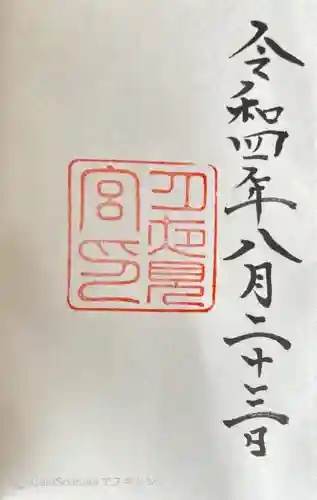 令和四年八月二十三日
月夜見宮印
CamScannerでスキャン